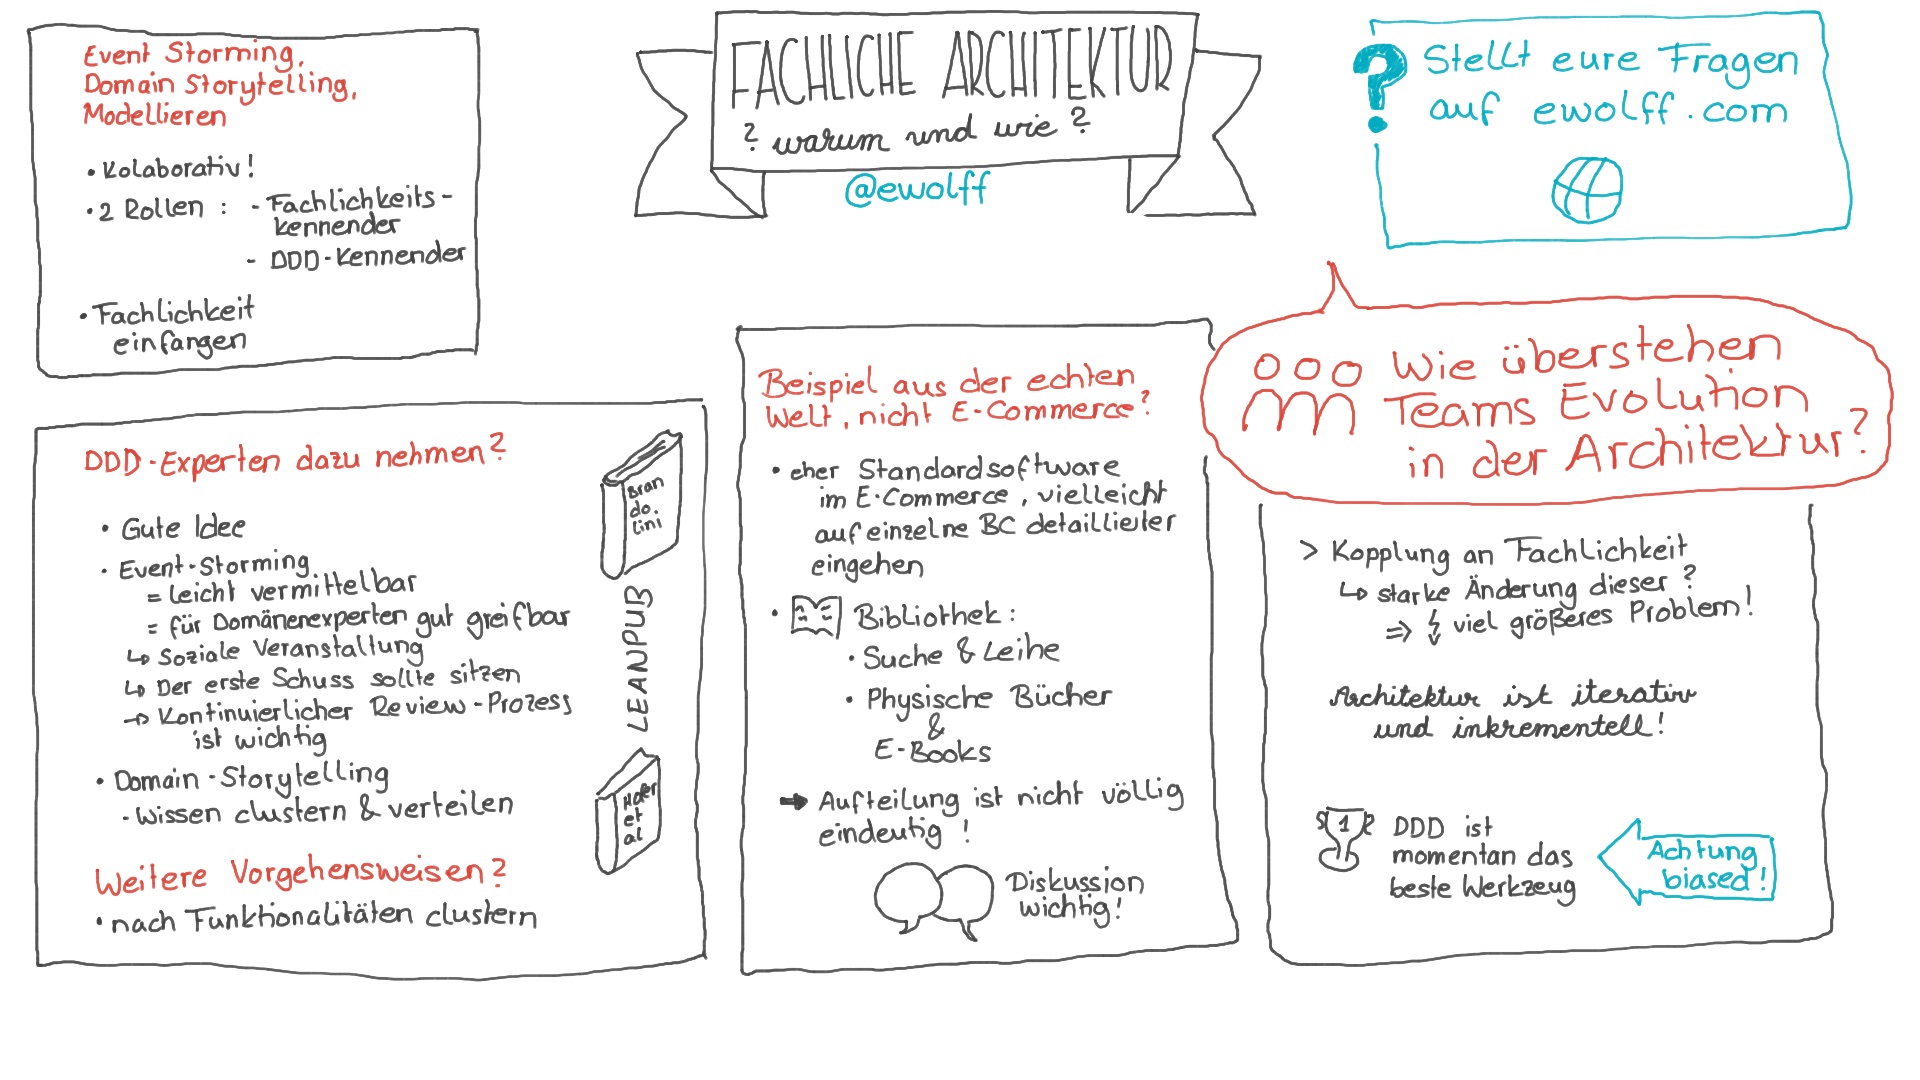 FACHLICHE ARCHITEKTUR
? warum und wie ?
@ewolff
? Stellt eure Fragen
auf ewolff.com
Event Storming,
Domain Storytelling,
Modellieren
• Kolaborativ!
• 2 Rollen : - Fachlichkeits-
kennender
- DDD-Kennender
• Fachlichkeit
einfangen
DDD-Experten dazu nehmen?
• Gute Idee
• Event-Storming
= leicht vermittelbar
= für Domänenexperten gut greifbar
↳ Soziale Veranstaltung
↳ Der erste Schuss sollte sitzen
→ Kontinuierlicher Review-Prozess
ist wichtig
• Domain-Storytelling
- Wissen clustern & verteilen
Weitere Vorgehensweisen?
• nach Funktionalitäten clustern
Bran
do.
lini
LEANPUB
Hofer
et
al
Beispiel aus der echten
Welt, nicht E-Commerce?
• eher Standardsoftware
im E-Commerce, vielleicht
auf einzelne BC detaillierter
eingehen
• Bibliothek:
• Suche & Leihe
• Physische Bücher
&
E-Books
➡ Aufteilung ist nicht völlig
eindeutig !
Diskussion
wichtig!
Wie überstehen
Teams Evolution
in der Architektur?
> Kopplung an Fachlichkeit
↳ starke Änderung dieser ?
⇒ viel größeres Problem!
Architektur ist iterativ
und inkrementell!
1
DDD ist
momentan das
beste Werkzeug
Achtung
biased!